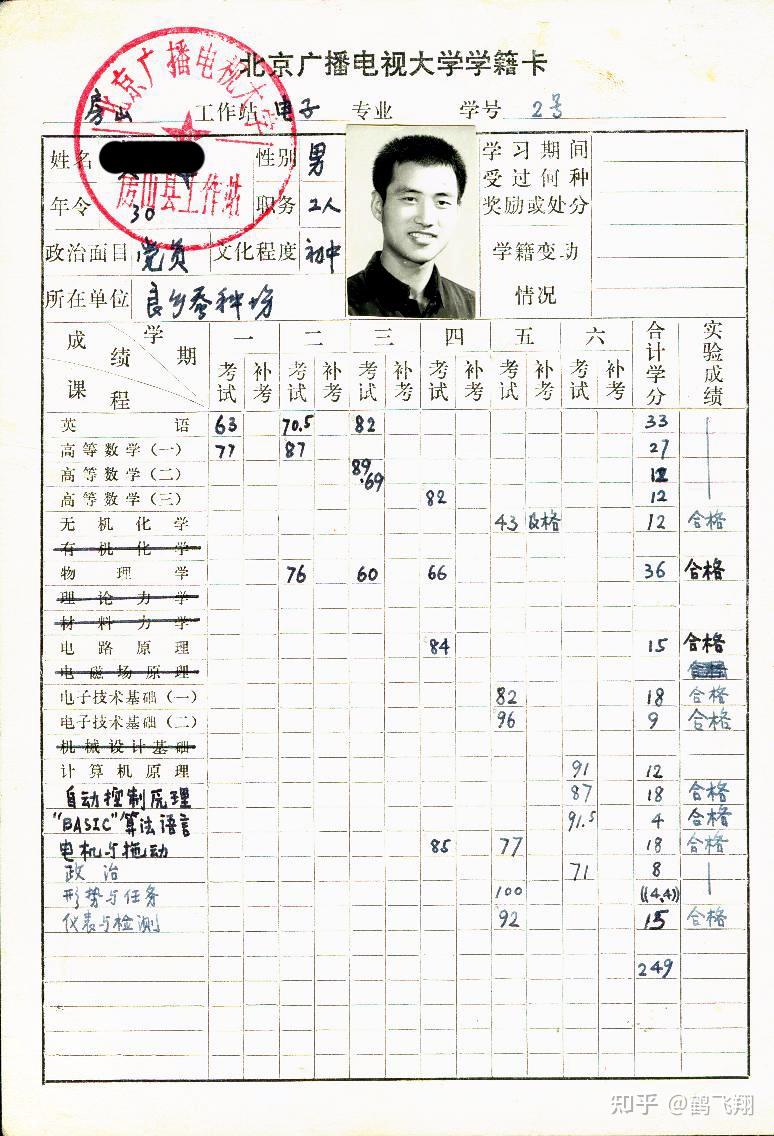 北京广播电视大学学籍卡
房山 工作站 电子 专业 学号 2号
北京广播电视大学
房山县工作站
姓名 性别 男 学习期间受过何种奖励或处分
年令 30 职务 工人
政治面目 党员 文化程度 初中 学籍变动情况
所在单位 良乡蚕种场
学期 成绩 课程 一 二 三 四 五 六 合计学分 实验成绩
考试 补考 考试 补考 考试 补考 考试 补考 考试 补考 考试 补考
英语 63 70.5 82 33
高等数学(一) 77 87 27
高等数学(二) 89.69 12
高等数学(三) 82 12
无机化学 43 及格 12 合格
有机化学
物理学 76 60 66 36 合格
理论力学
材料力学
电路原理 84 15 合格
电磁场原理
电子技术基础(一) 82 18 合格
电子技术基础(二) 96 9 合格
机械设计基础
计算机原理 91 12
自动控制原理 87 18 合格
"BASIC"算法语言 91.5 4 合格
电机与拖动 85 77 18 合格
政治 71 8
形势与任务 100 ((4.4))
仪表与检测 92 15 合格
249
知乎 @鹤飞翔